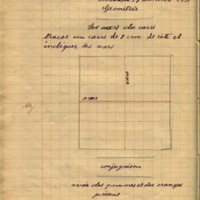 Géométrie
Les axes du carré
tracer un carré de 8 cm de côté et
indiquer les axes
axe
axe
conjugaison
avoir des pommes et des oranges
présent